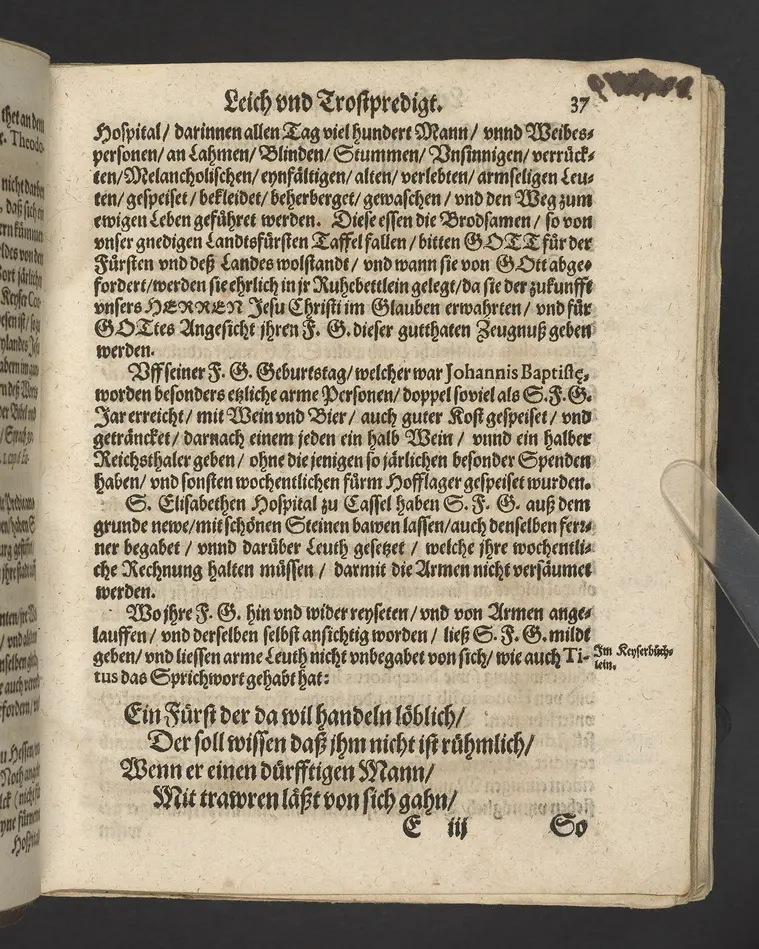 Leich vnd Trostpredigt. 37
Hospital/ darinnen allen Tag viel hundert Mann/ vnnd Weibes-
personen/ an Lahmen/ Blinden/ Stummen/ Vnsinnigen/ verrück-
ten/ Melancholischen/ eynfältigen/ alten/ verlebten/ armseligen Leu-
ten/ gespeiset/ bekleidet/ beherberget/ gewaschen/ vnd den Weg zum
ewigen Leben geführet werden. Diese essen die Brodsamen/ so von
vnser gnedigen Landtsfürsten Taffel fallen/ bitten GOTT für der
Fürsten vnd deß Landes wolstandt/ vnd wann sie von GOtt abge-
fordert/ werden sie ehrlich in jr Ruhebettlein gelegt/ da sie der zukunfft
vnsers HERREN Jesu Christi im Glauben erwahrten/ vnd für
GOTtes Angesicht jhren F. G. dieser gutthaten Zeugnuß geben
werden.
Vff seiner F. G. Geburtstag/ welcher war Johannis Baptistę,
worden besonders etzliche arme Personen/ doppel soviel als S. F. G.
Jar erreicht/ mit Wein vnd Bier/ auch guter Kost gespeiset/ vnd
geträncket/ darnach einem jeden ein halb Wein/ vnnd ein halber
Reichsthaler geben/ ohne die jenigen so järlichen besonder Spenden
haben/ vnd sonsten wochentlichen fürm Hofflager gespeiset wurden.
S. Elisabethen Hospital zu Cassel haben S. F. G. auß dem
grunde newe/ mit schönen Steinen bawen lassen/ auch denselben fer-
ner begabet/ vnnd darüber Leuth gesetzet/ welche jhre wochentli-
che Rechnung halten müssen/ darmit die Armen nicht versäumet
werden.
Wo jhre F. G. hin vnd wider reyseten/ vnd von Armen ange-
lauffen/ vnd derselben selbst ansichtig worden/ ließ S. F. G. mildt
geben/ vnd liessen arme Leuth nicht vnbegabet von sich/ wie auch Ti-
tus das Sprichwort gehabt hat:
Im Keyserbüch-
lein.
Ein Fürst der da wil handeln löblich/
Der soll wissen daß jhm nicht ist rühmlich/
Wenn er einen dürfftigen Mann/
Mit trawren läßt von sich gahn/
E iij So